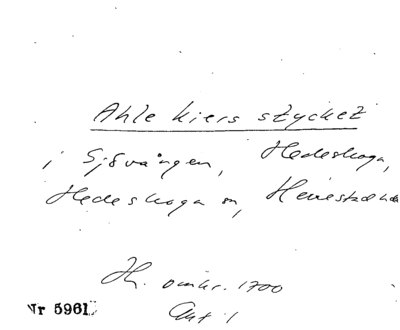 Ahle kiers stycket
i Sjövången, Hedeskoga,
Hedeskoga sn, Herrestads hd
H. omkr. 1700
Akt 1
Nr 5961.